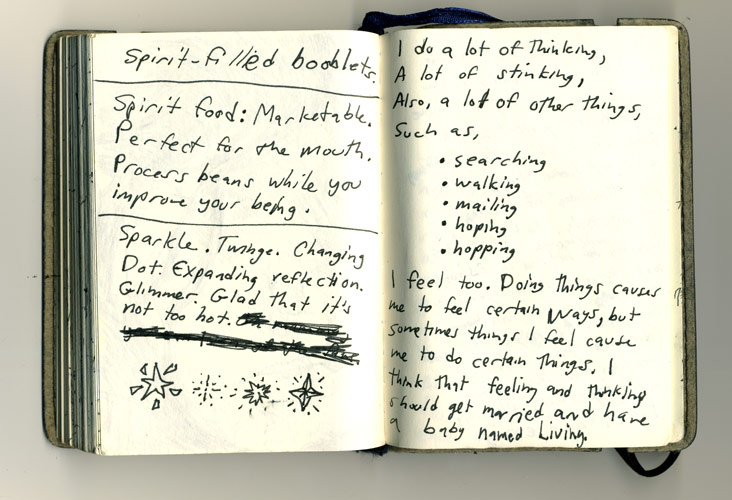 Spirit-filled booklets.
Spirit food: Marketable.
Perfect for the mouth.
Process beans while you
improve your being.
Sparkle. Twinge. Changing
Dot. Expanding reflection.
Glimmer. Glad that it's
not too hot.
I do a lot of Thinking,
A lot of stinking,
Also, a lot of other things,
Such as,
• searching
• walking
• mailing
• hoping
• hopping
I feel too. Doing things causes
me to feel certain ways, but
sometimes things I feel cause
me to do certain things. I
think that feeling and thinking
should get married and have
a baby named Living.